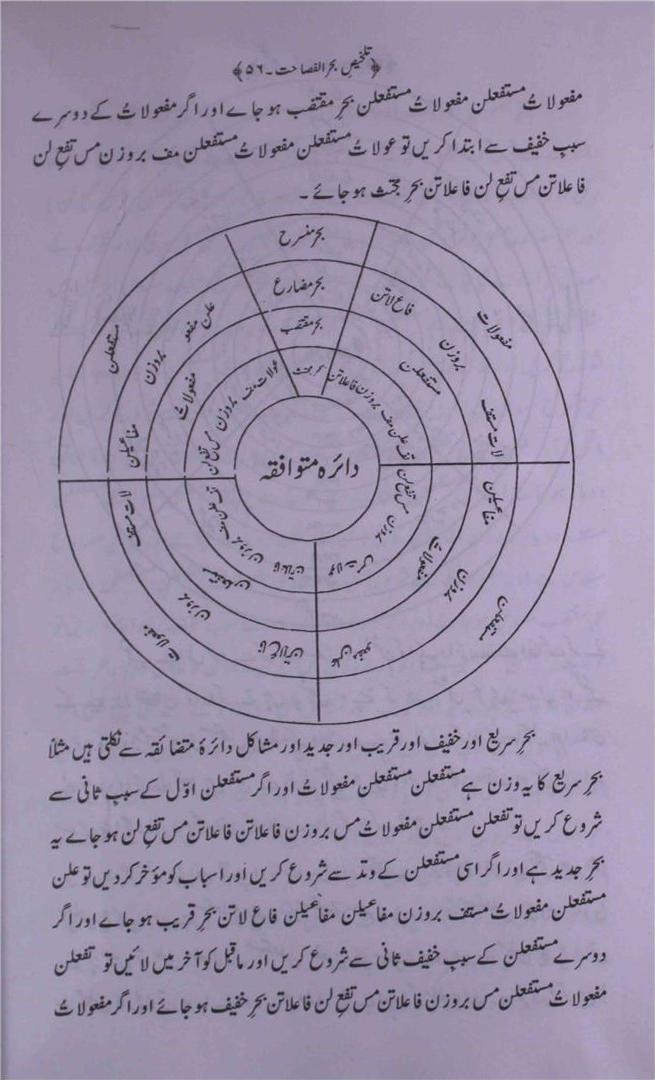 ﴿تلخیص بحر الفصاحت۔۵۶﴾
مفعولاتُ مستفعلن مفعولاتُ مستفعلن بحرِ مقتضب ہو جاے اور اگر مفعولاتُ کے دوسرے
سببِ خفیف سے ابتدا کریں تو عولاتُ مستفعلن مفعولاتُ مستفعلن مف بروزن مس تفع لن
فاعلاتن مس تفعِ لن فاعلاتن بحرِ مجتث ہو جائے ۔
بحر منسرح
بحر مضارع
بحر مقتضب
بحر مجتث
مفعولات
لات مستف
مستفعلن
مفعولات
مستفعلن
فاع لاتن
بروزن
مفاعیلن
بروزن
علن مفعو
فاع لاتن
بروزن
لات مستف
مفاعیلن
بروزن
علن مفعو
مستفعلن
مفعولات
مستفعلن
مفعولاتُ
تف علن مف بروزن فاعلاتن
مس تفع لن
بروزن
عولات مس
فاعلاتن
بروزن
تف علن مف
مس تفع لن
بروزن
عولات مف
دائرہ متوافقہ
بحرِ سریع اور خفیف اور قریب اور جدید اور مشاکل دائرۂ متضائقہ سے نکلتی ہیں مثلاً
بحرِ سریع کا یہ وزن ہے مستفعلن مستفعلن مفعولاتُ اور اگر مستفعلن اوّل کے سببِ ثانی سے
شروع کریں تو تفعلن مستفعلن مفعولاتُ مس بروزن فاعلاتن فاعلاتن مس تفعِ لن ہو جاے یہ
بحرِ جدید ہے اور اگر اسی مستفعلن کے وتد سے شروع کریں اور اسباب کو مؤخر کردیں تو علن
مستفعلن مفعولاتُ مستف بروزن مفاعیلن مفاعیلن فاع لاتن بحرِ قریب ہو جاے اور اگر
دوسرے مستفعلن کے سببِ خفیف ثانی سے شروع کریں اور ماقبل کو آخر میں لائیں تو تفعلن
مفعولاتُ مستفعلن مس بروزن فاعلاتن مس تفعِ لن فاعلاتن بحرِ خفیف ہو جائے اور اگر مفعولاتُ